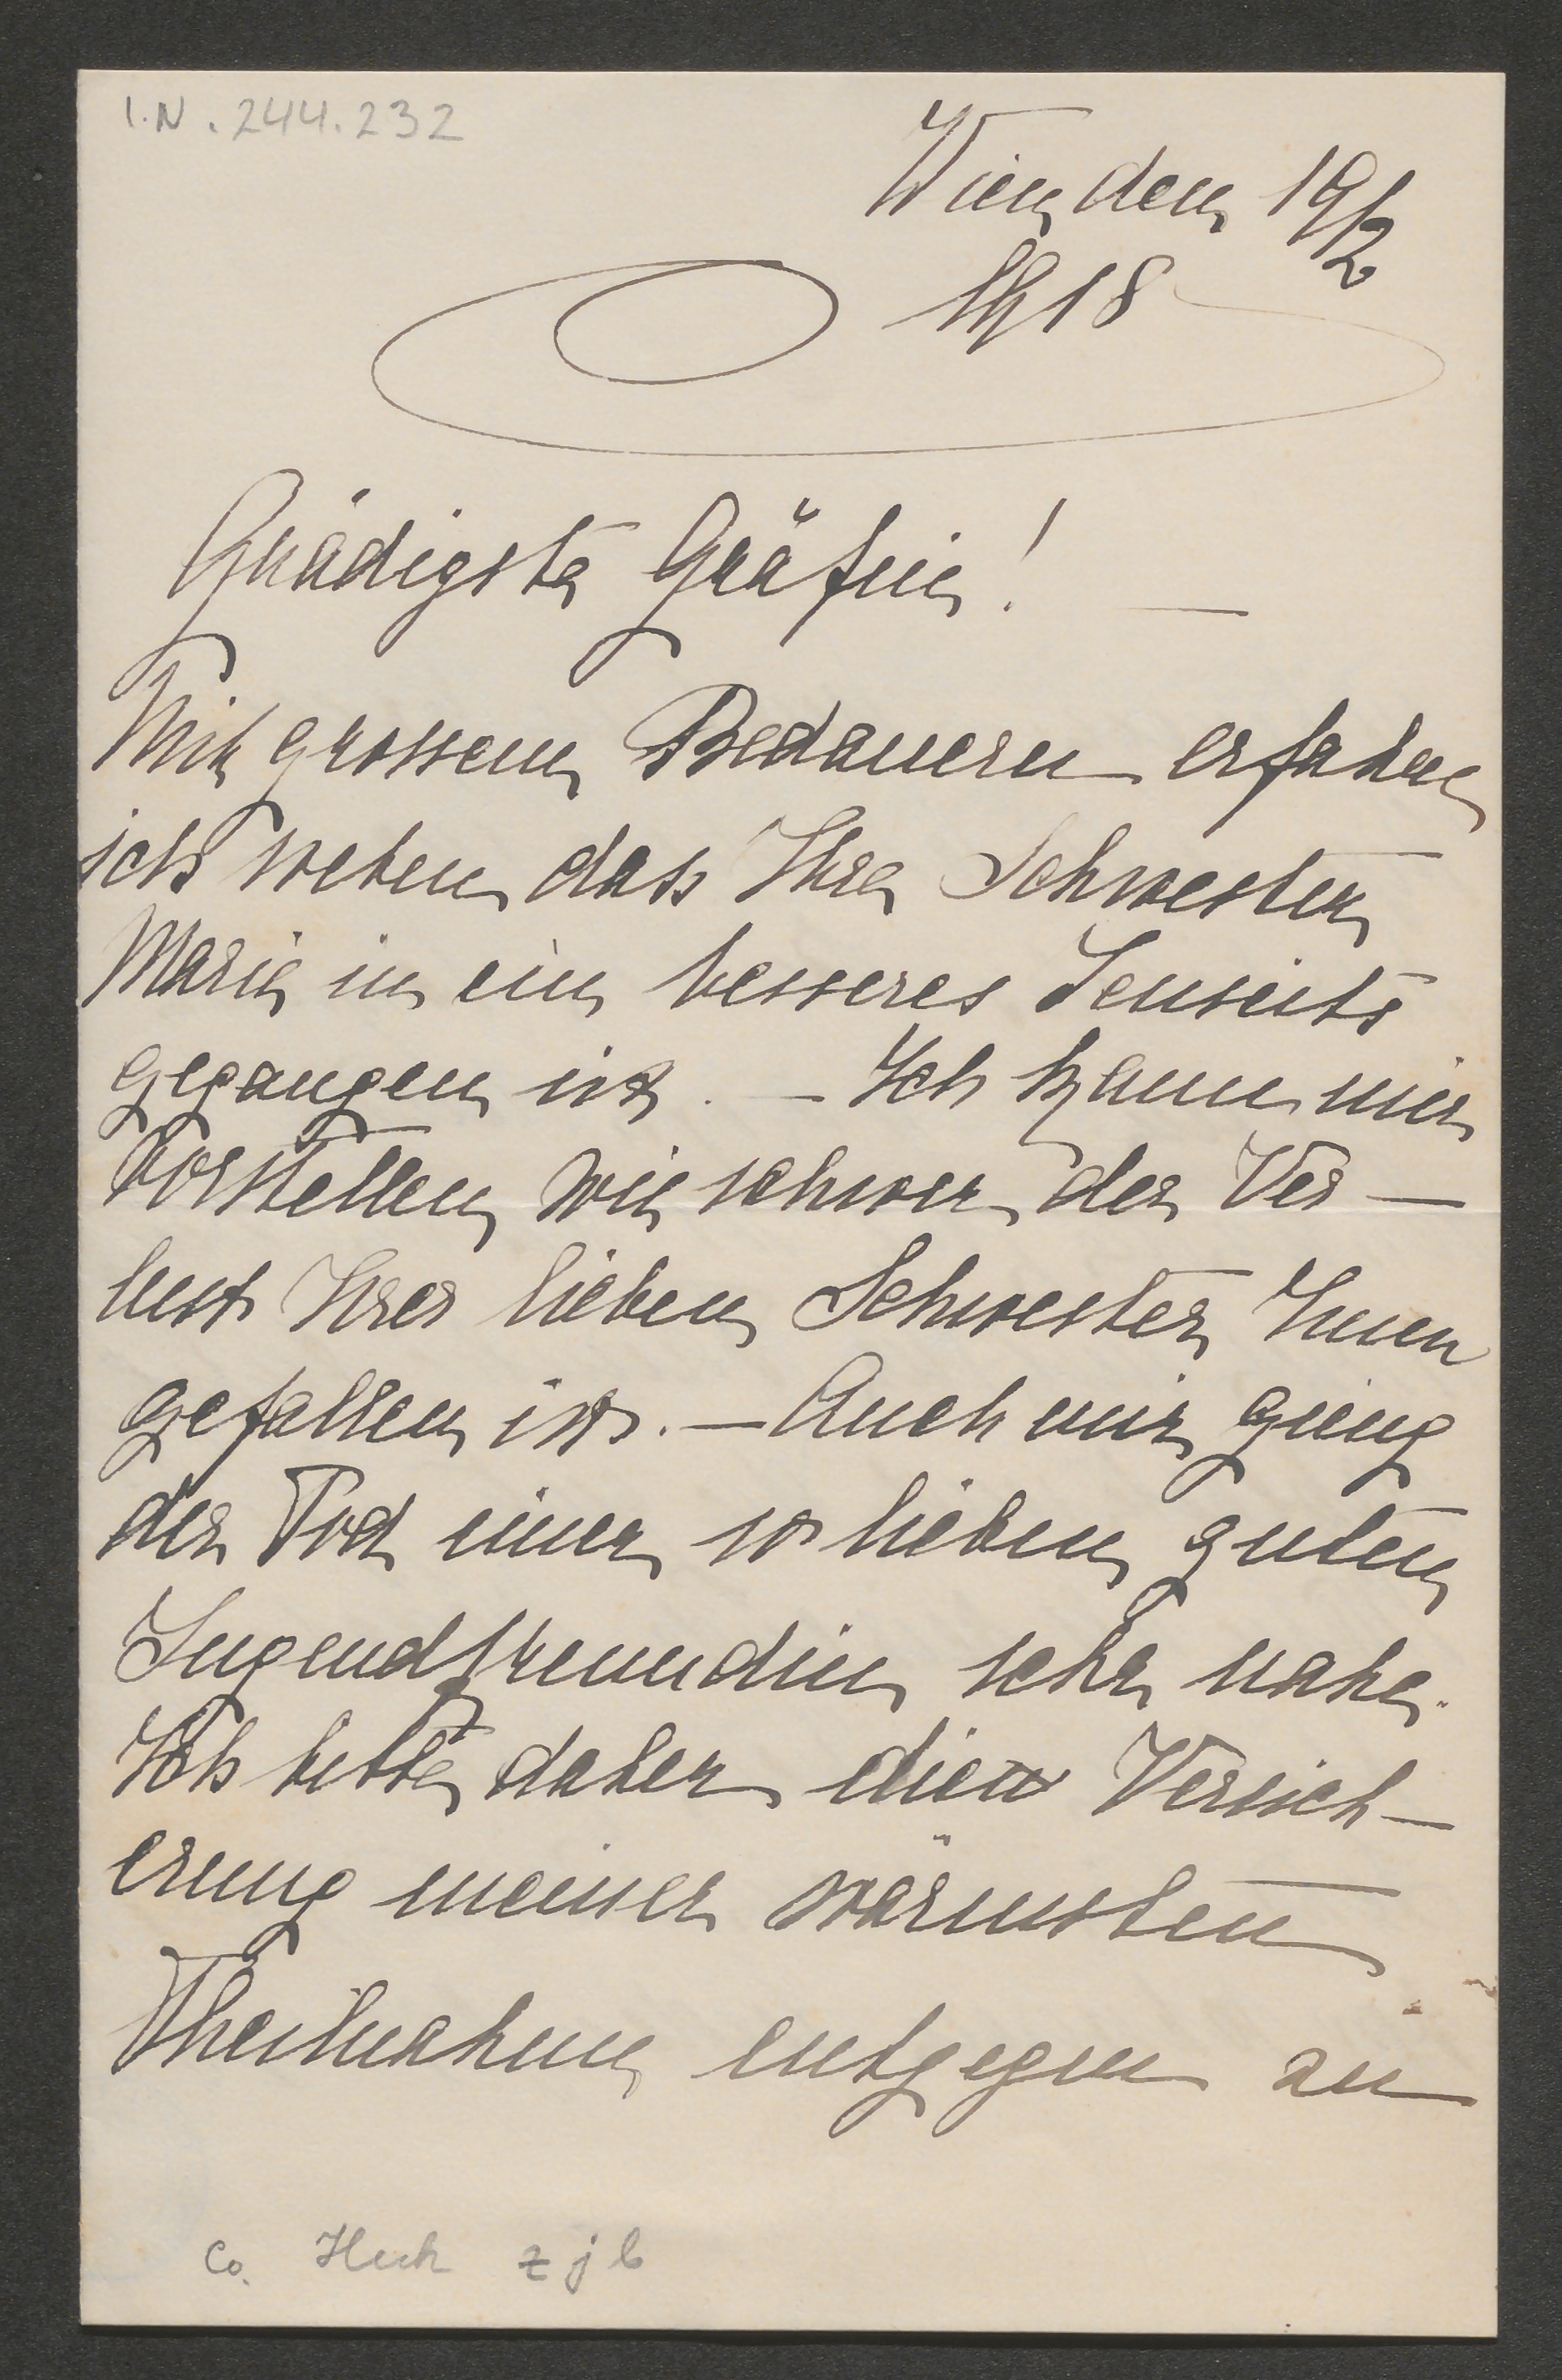 I.N. 244.232
Wien den 19/2
1918
Gnädigste Gräfin! —
Mit grossem Bedauern erfahre
ich soeben dass Ihre Schwester
Marie in ein besseres Jenseits
gegangen ist. — Ich kann mir
vorstellen wie schwer der Ver—
lust Ihrer lieben Schwester Ihnen
gefallen ist. — Auch mir gieng
der Tod einer so lieben guten
Jugendfreundin sehr nahe.
Ich bitte daher die Versich—
erung meiner wärmsten
Theilnahme entgegen zu
Co. Heck z j b